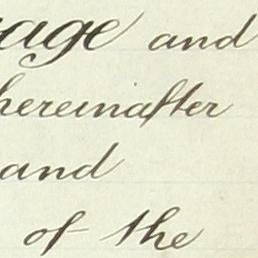 and
hereinafter
and
of the